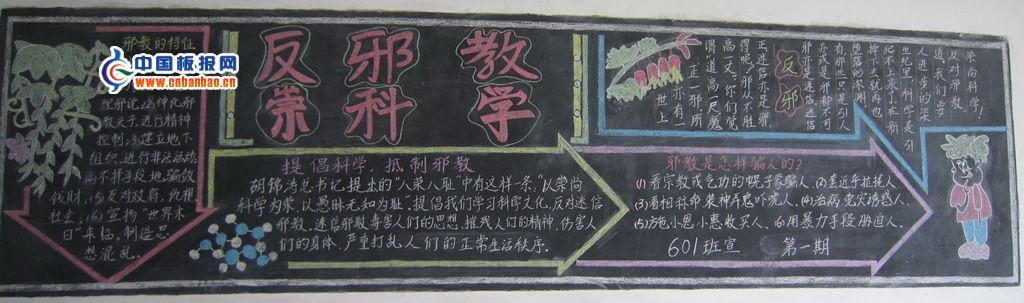 邪教的特征
中国板报网
www.cnbanbao.cn
歪邪说;(2)神化邪
教头子,进行精神
控制;(3)建立地下
组织,进行非法活动;
(4)不择手段地骗敛
钱财;(5)反对政府,仇视
社会;(6)宣扬“世界末
日”来临,制造恐
慌混乱。
反邪教
崇科学
提倡科学,抵制邪教
胡锦涛总书记提出的“八荣八耻”中有这样一条:“以崇尚
科学为荣,以愚昧无知为耻”,提倡我们学习科学文化,反对迷信
邪教。迷信邪教毒害人们的思想,摧残人们的精神,伤害人
们的身体,严重打乱人们的正常生活秩序。
反邪
正迷信亦是邪
得呢?邪亦不胜
高一丈。你们觉
谓道高一尺魔
一正一邪,所
世上
亦邪亦是迷信
亦或是邪都不可
有,那些只是引人
堕落的深渊,
掉下就再也
爬不上来了,在新
世纪,科学是引
人进步的
道,我们要
反对邪教
崇尚科学!
邪教是怎样骗人的?
(1)看宗教或气功的幌子蒙骗人、(2)套近乎拉拢人、
(3)看相算命装神弄鬼吓唬人、(4)治病免灾诱惑人、
(5)施小恩小惠收买人、(6)用暴力手段胁迫人。
601班宣 第一期